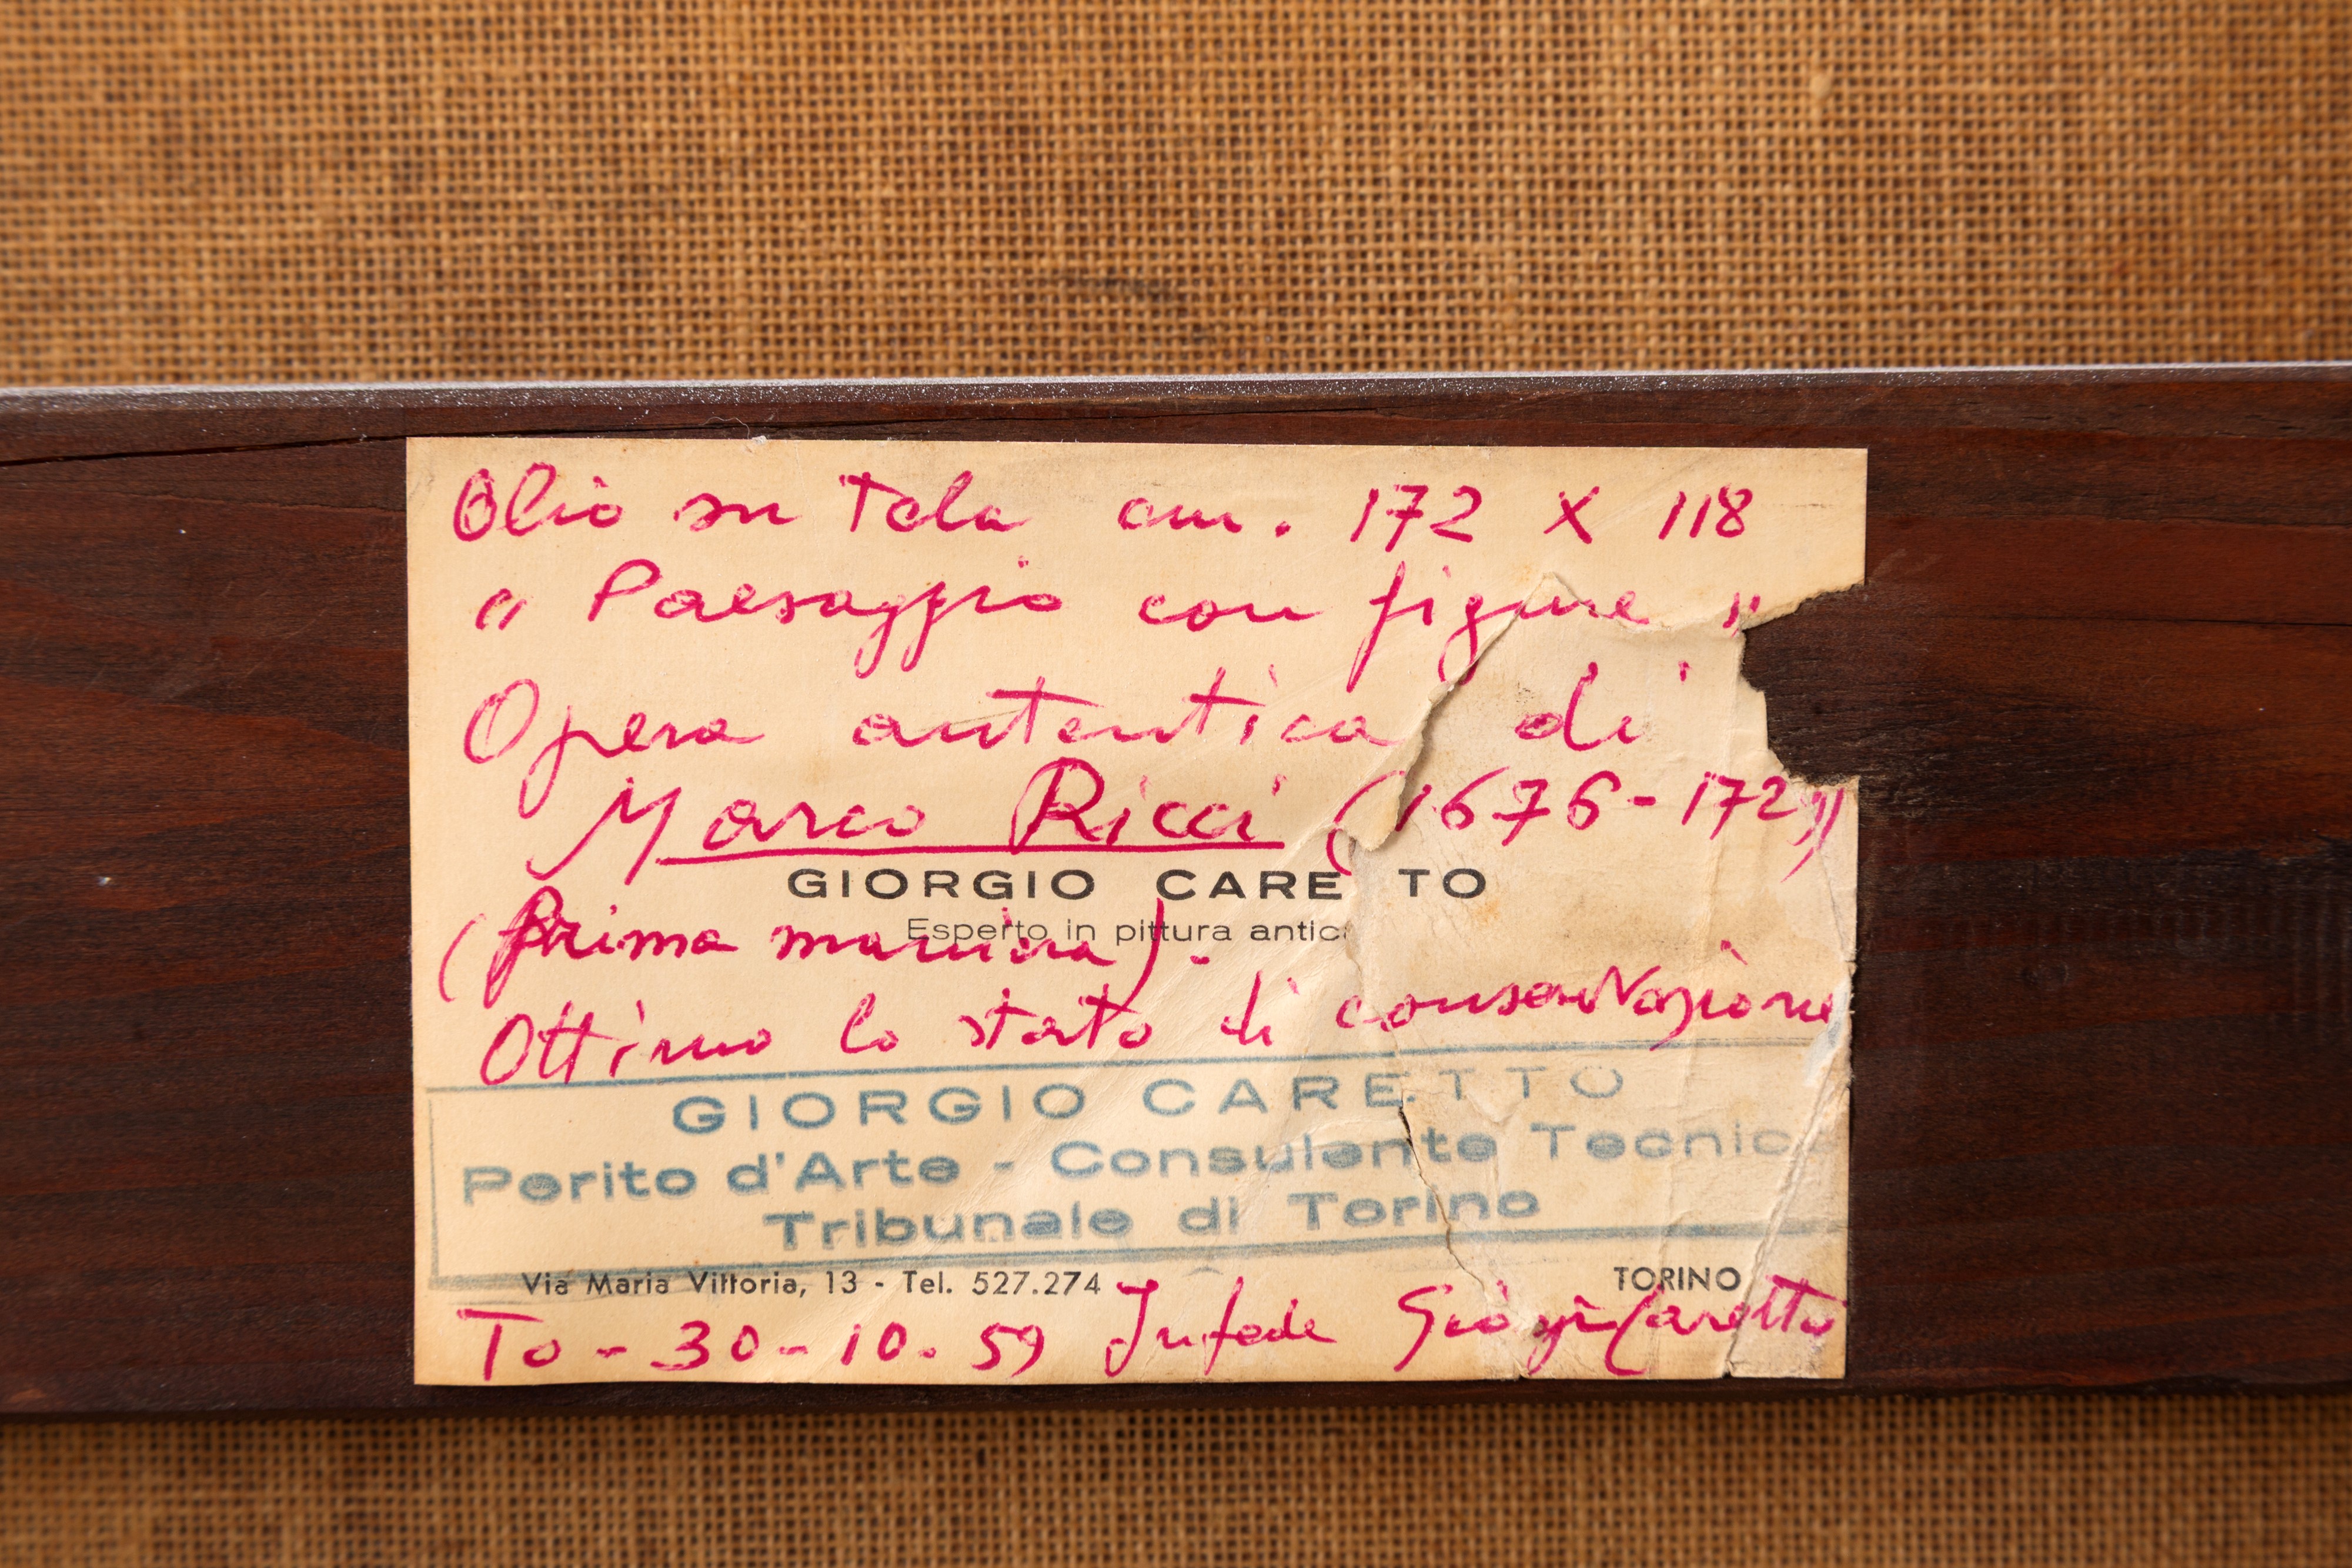 Olio su tela cm. 172 X 118
" Paesaggio con figure "
Opera autentica di
Marco Ricci (1676-1729)
GIORGIO CARE TO
Esperto in pittura antic
(Prima maniera).-
Ottimo lo stato di conservazione
GIORGIO CARETTO
Perito d'Arte - Consulente Tecnico
Tribunale di Torino
Via Maria Vittoria, 13 - Tel. 527.274 TORINO
To - 30-10.59 In fede Giorgio Caretto